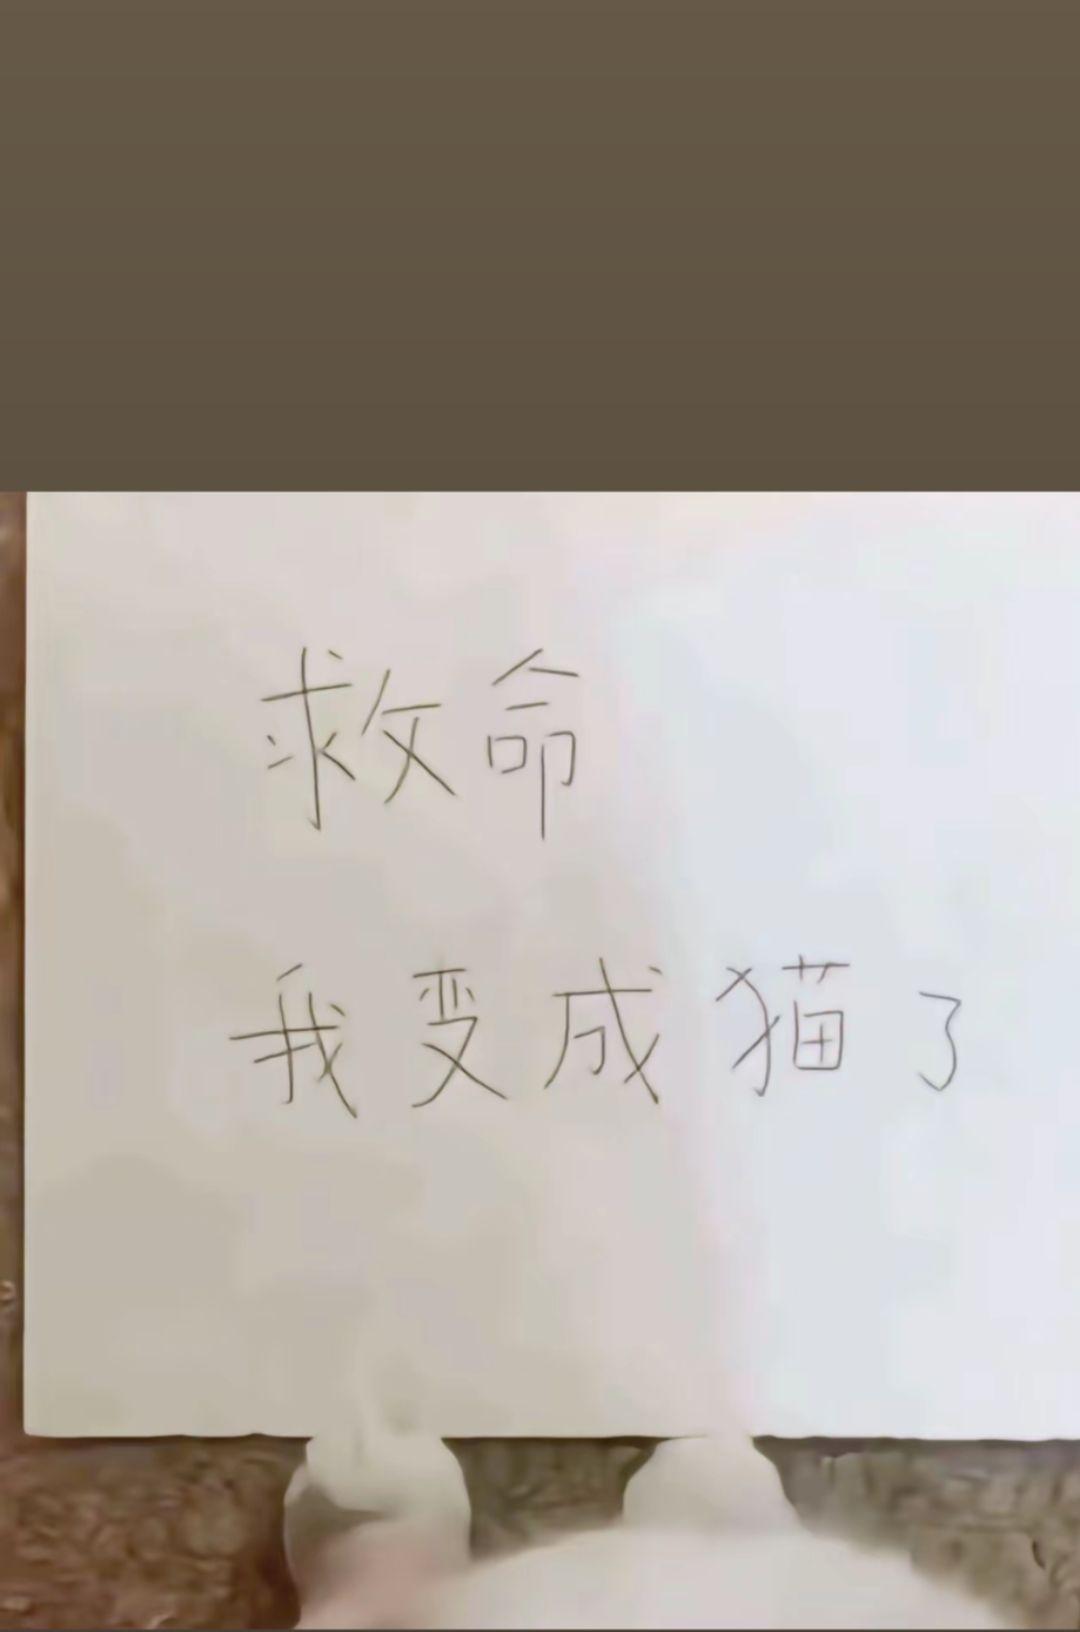 救命
我变成猫了